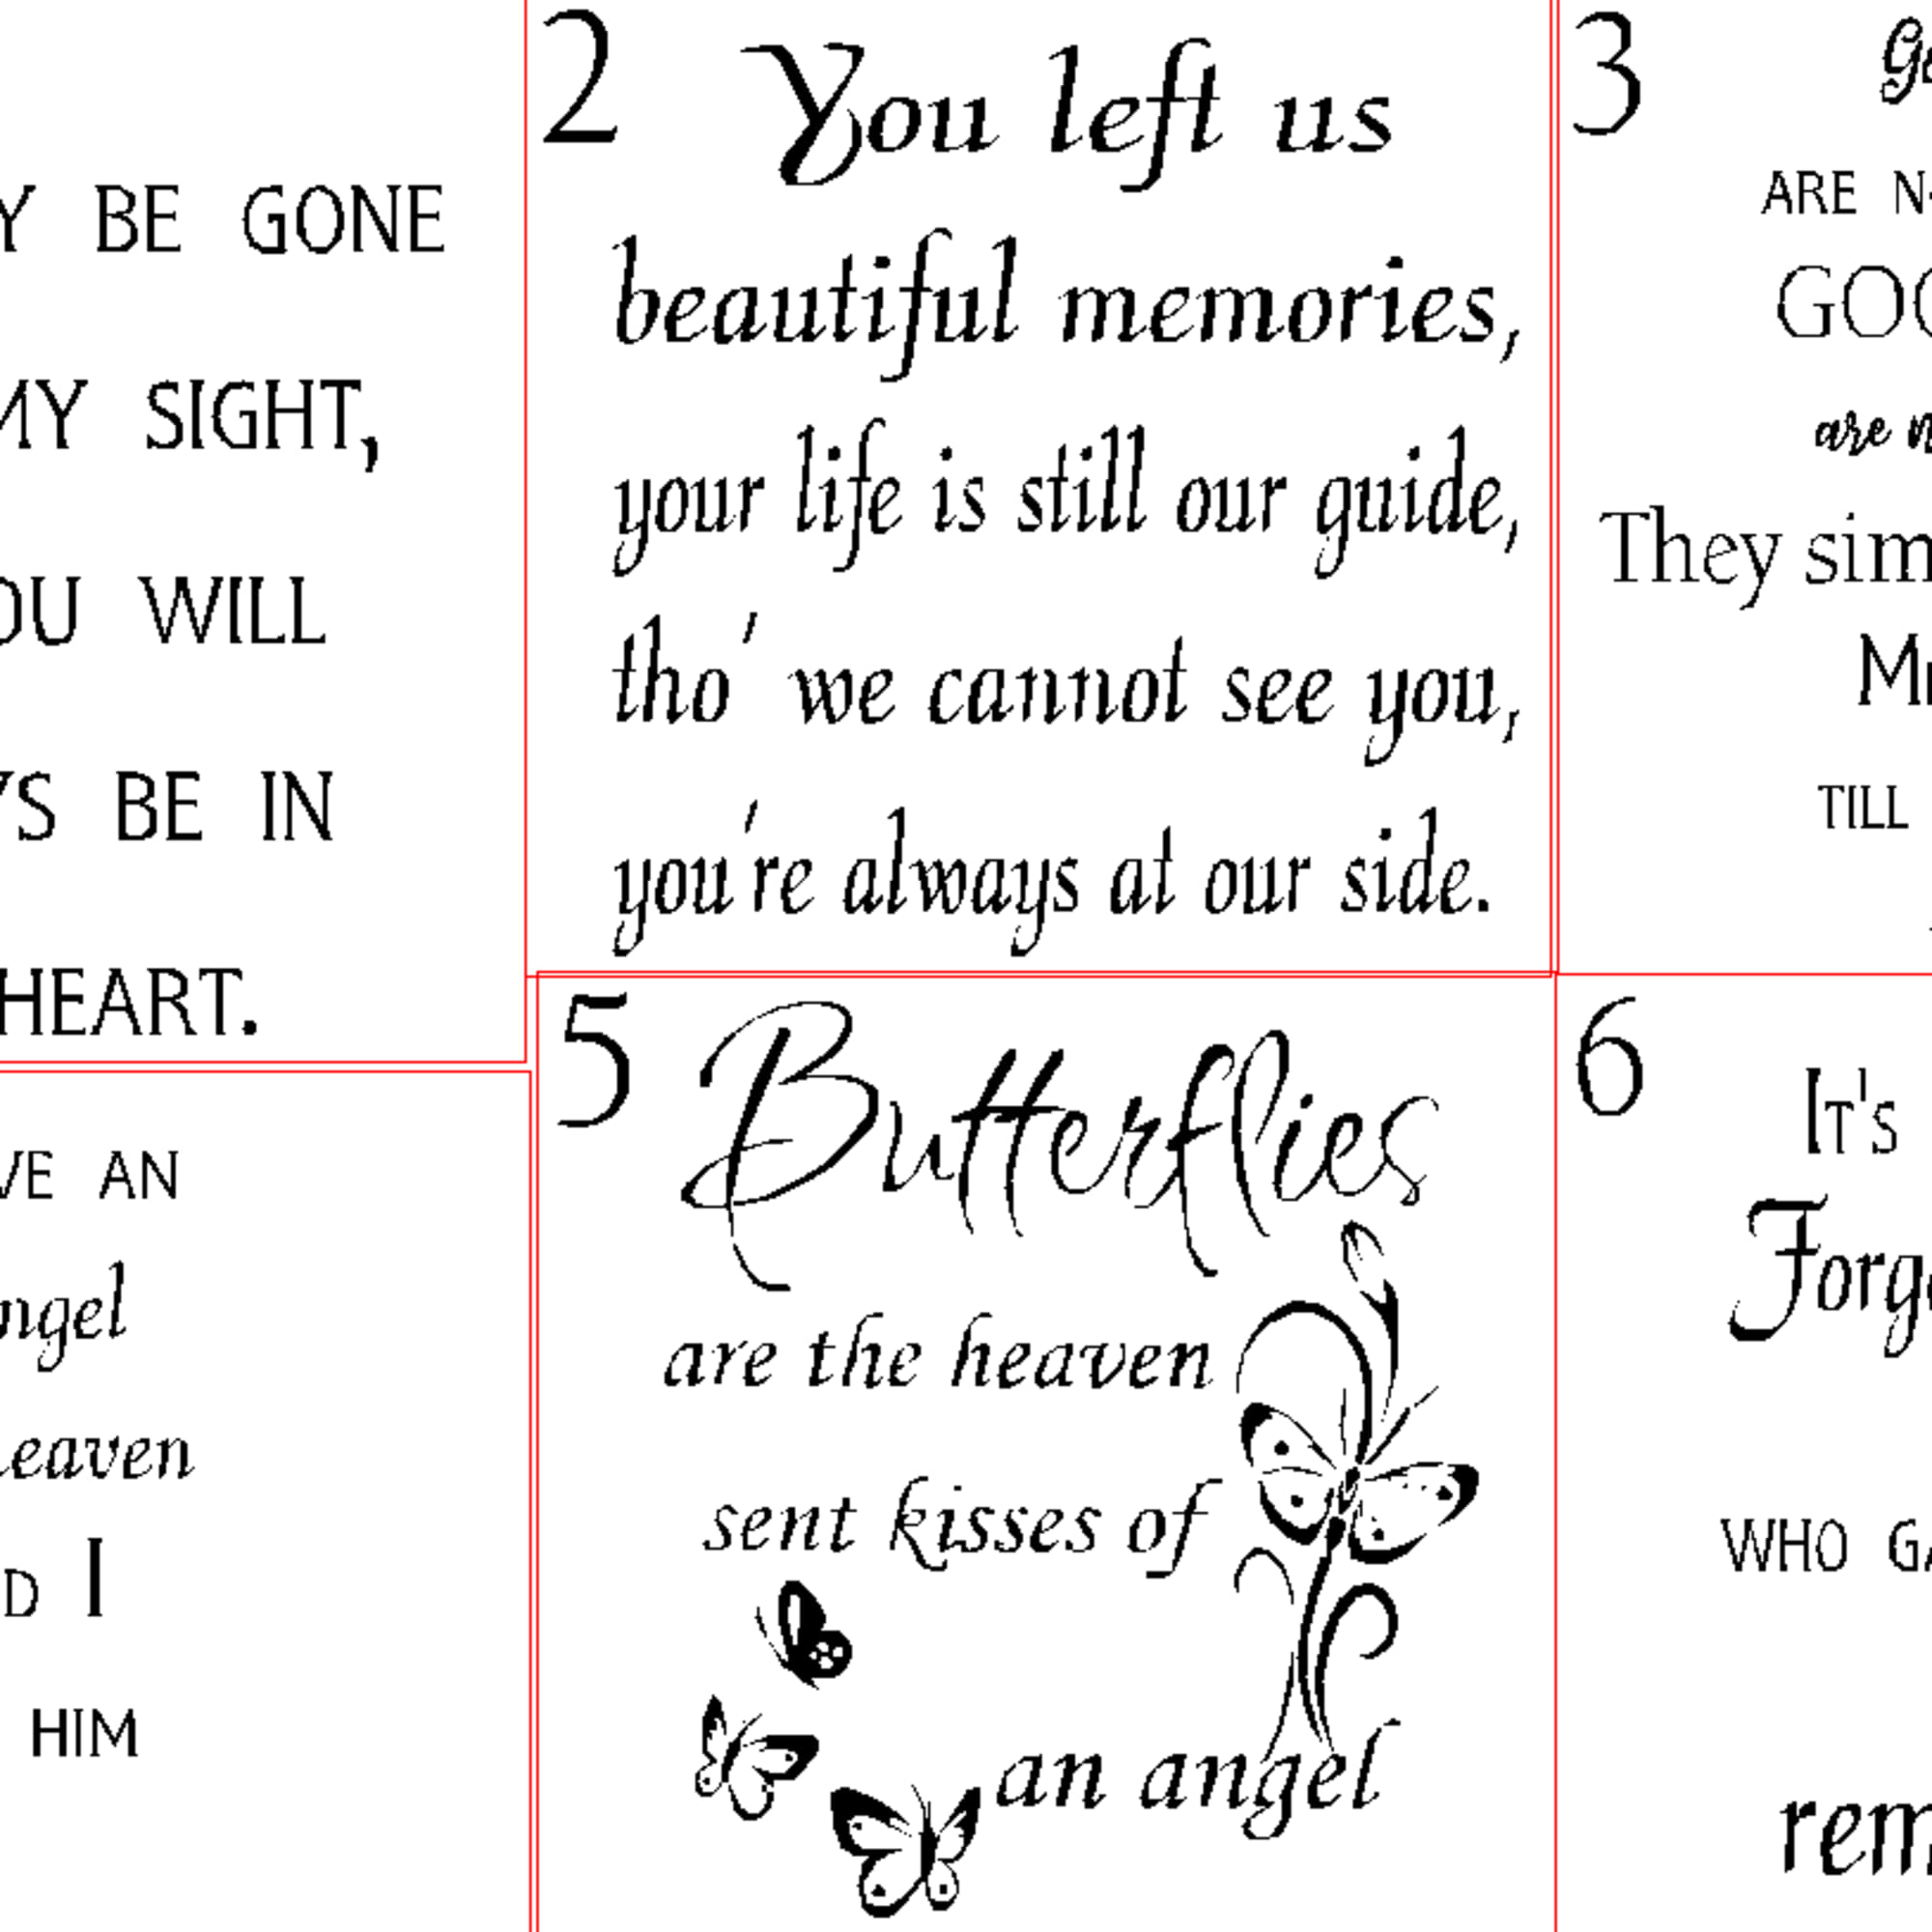 Y BE GONE
MY SIGHT,
OU WILL
YS BE IN
HEART.
2
You left us
beautiful memories,
your life is still our guide,
tho' we cannot see you,
you're always at our side.
3
ARE N
GOO
are
They sim
TILL
VE AN
ngel
eaven
D I
HIM
5
Butterflies
are the heaven
sent kisses of
an angel
6
IT'S
Forg
WHO GA
rem